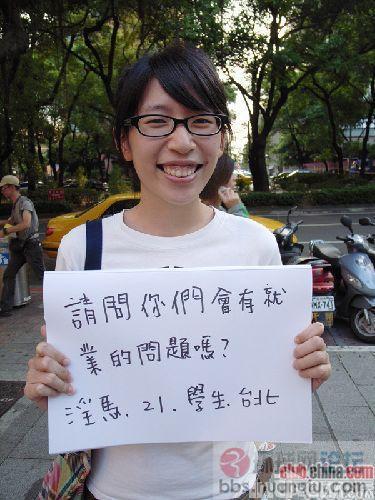 請問你們會有就
業的問題嗎?
淫馬. 21. 學生. 台北
bbs.huanqiu.com
club.china.com